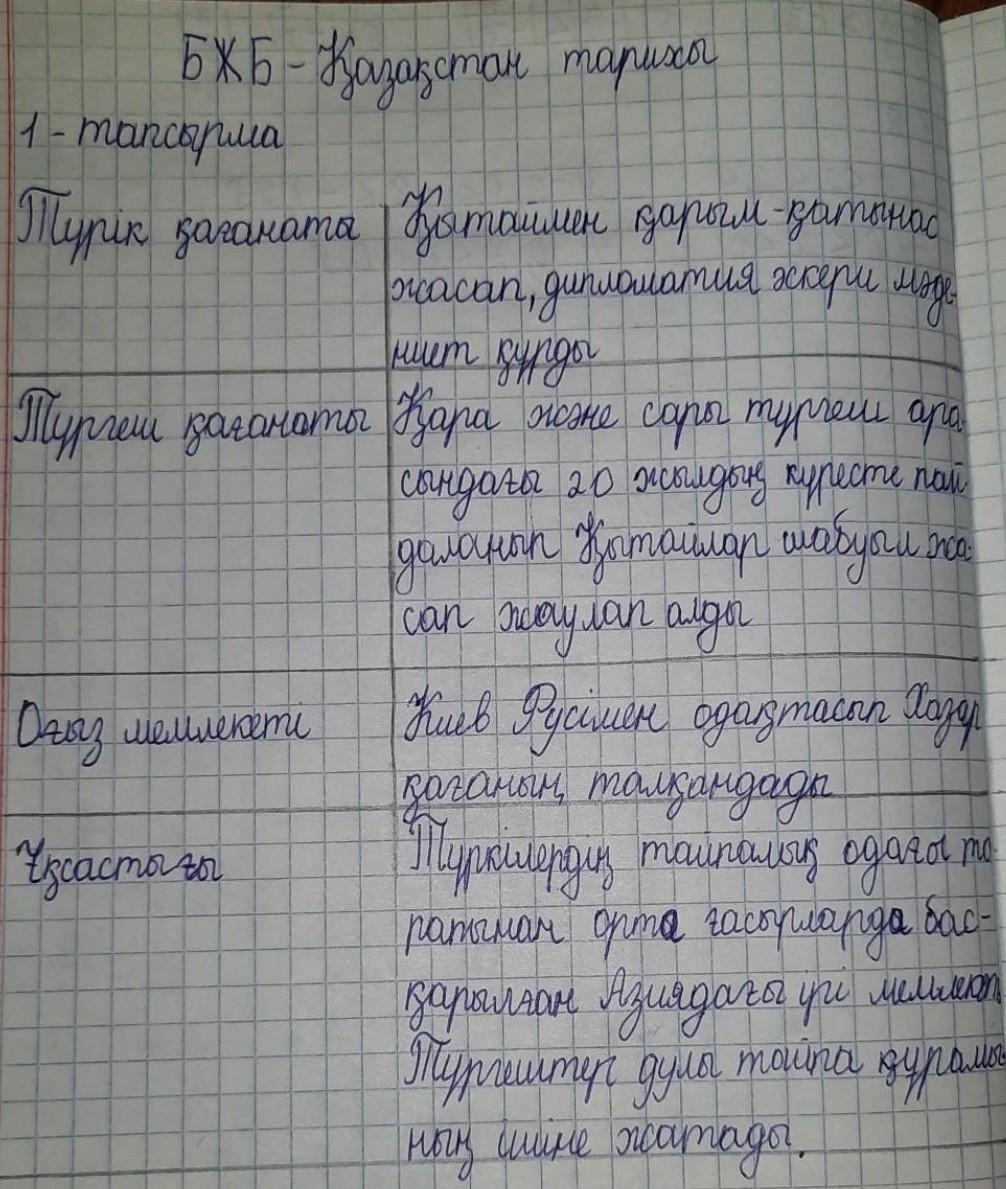 БЖБ - Қазақстан тарихы
1 - тапсырма
Түрік қағанаты
Қытаймен қарым-қатынас
жасап, дипломатия әскери мәде-
ниет құрды
Түргеш қағанаты
Қара және сары түргеш ара
сындағы 20 жылдың күресте пай
даланып Қытайлар шабуыл жа-
сап жаулап алды
Оғыз мемлекеті
Киев Русімен одақтасып Хазар
қағаның талқандады
Ұқсастығы
Түркілердің тайпалық одағы та-
ратынан орта ғасырларда бас-
қарылған Азиядағы ірі мемлекет
Түргештер дулы тайпа құрамы
ның ішіне жатады.